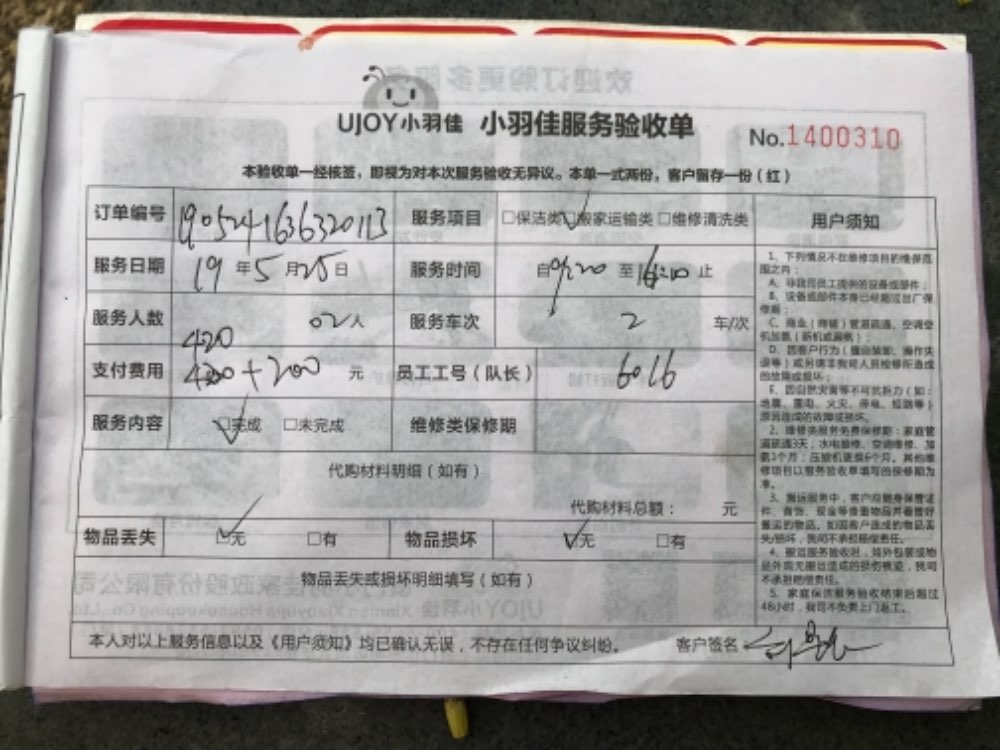 UJOY小羽佳 小羽佳服务验收单
No.1400310
本验收单一经核签，即视为对本次服务验收无异议。本单一式两份，客户留存一份（红）
订单编号 1905241636320113 服务项目 □保洁类 □搬家运输类 □维修清洗类
服务日期 19年5月25日 服务时间 自9:20至16:10止
服务人数 02人 服务车次 2 车/次
420
支付费用 +200 元 员工工号（队长） 6016
服务内容 □完成 □未完成 维修类保修期
代购材料明细（如有）
代购材料总额： 元
物品丢失 □无 □有 物品损坏 □无 □有
物品丢失或损坏明细填写（如有）
本人对以上服务信息以及《用户须知》均已确认无误，不存在任何争议纠纷。 客户签名
用户须知
1、下列情况不在维修项目的维保范
围之内：
A、非我司员工提供的设备或部件；
B、设备或部件本身已经超过出厂保
修期；
C、商业（商铺）管道疏通、空调空
机加氨（新机或漏氨）；
D、因客户行为（擅自装卸、操作失
误等）或另请非我司人员检修所造成
的故障或损坏；
E、因自然灾害等不可抗拒力（如：
地震、雷电、火灾、停电、短路等）
原因造成的故障或损坏。
2、维修类服务免费保修期：家庭管
道疏通3天，水电维修、空调维修、加
氨3个月；压缩机更换6个月。其他维
修项目以服务验收单填写的保修期为
准。
3、搬运服务中，客户应随身保管证
件、首饰、现金等贵重物品并看管好
搬运的物品。如因客户造成的物品丢
失/损坏，我司不承担赔偿责任。
4、搬运服务验收时，如外包装或物
品外观无搬运造成的损伤痕迹，我司
不承担赔偿责任。
5、家庭保洁服务验收结束后超过
48小时，我司不负责上门返工。